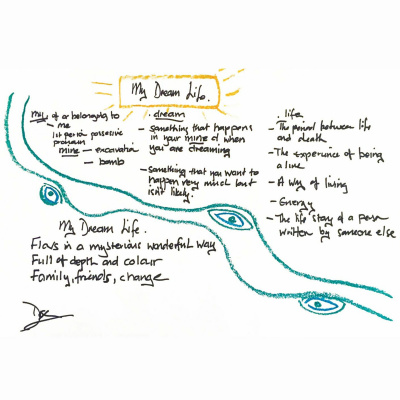 My Dream Life.
my of or belonging to
- me
1st person possessive
pronoun
mine - excavation
- bomb
. dream
- something that happens
in your mind when
you are dreaming
- something that you want to
happen very much but
isn't likely.
. life
- The period between life
and death
- The experience of being
a live
- A way of living
- Energy
- The life story of a person
written by someone else
My Dream Life.
Flows in a mysterious wonderful way
Full of depth and colour
Family, friends, change